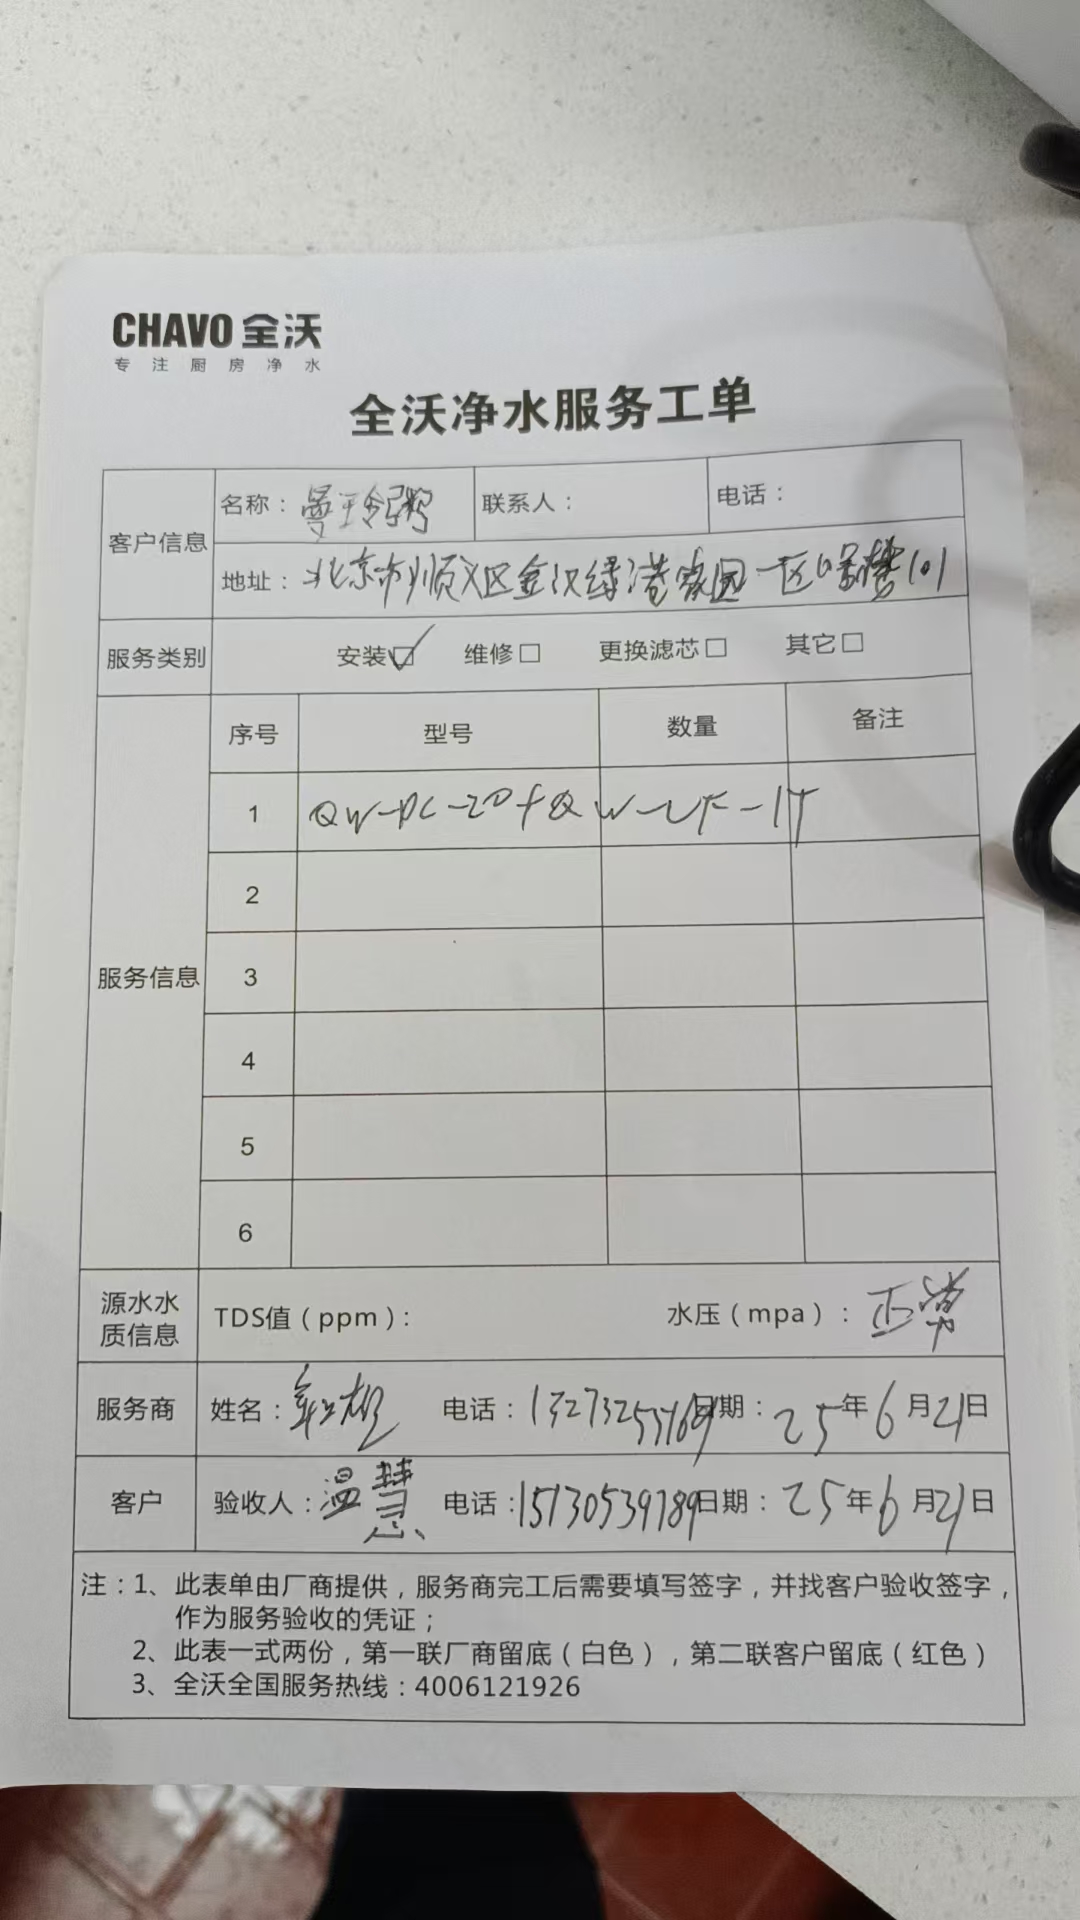 CHAVO 全沃
专注厨房净水
全沃净水服务工单
客户信息
名称：曼玲粥
联系人：
电话：
地址：北京市顺义区金汉绿港家园一区 楼101
服务类别
安装☑ 维修□ 更换滤芯□ 其它□
服务信息
序号 型号 数量 备注
1 QW-DC-20+QW-UF-1T
2
3
4
5
6
源水水质信息
TDS值（ppm）：
水压（mpa）：正常
服务商
姓名：
电话：
日期：25年6月21日
客户
验收人：温慧
电话：15130539789
日期：25年6月21日
注：1、此表单由厂商提供，服务商完工后需要填写签字，并找客户验收签字，
作为服务验收的凭证；
2、此表一式两份，第一联厂商留底（白色），第二联客户留底（红色）
3、全沃全国服务热线：4006121926